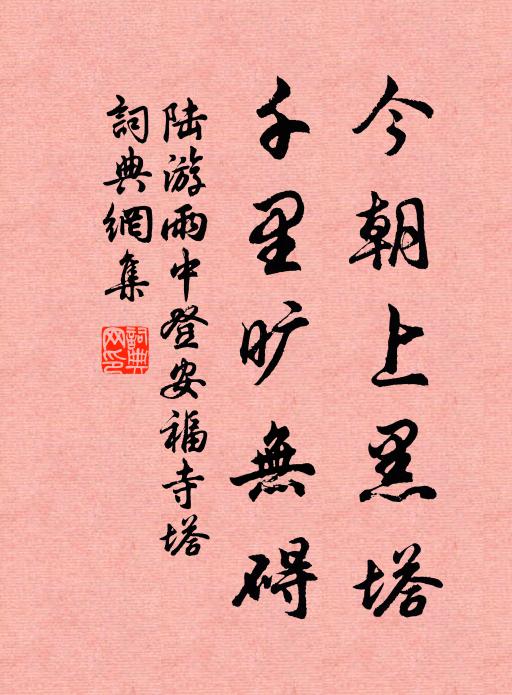 今朝上黑塔
千里旷無碍
陆游雨中登安福寺塔
詞典網集
詞典网印